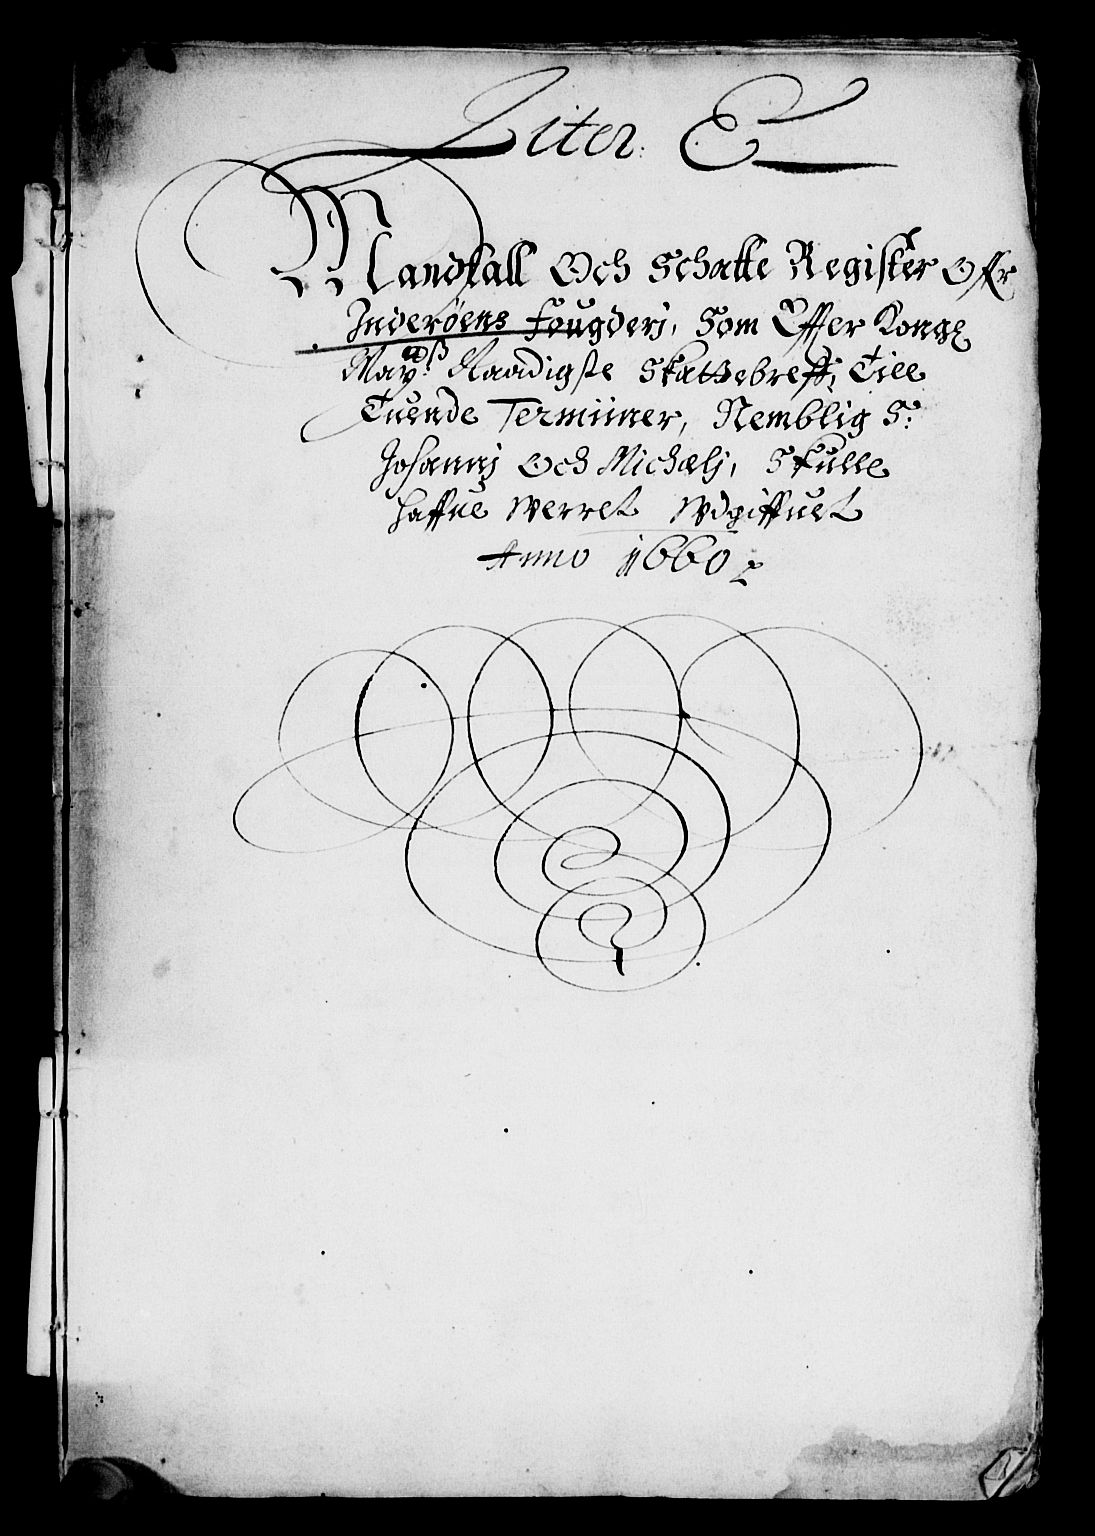 Liter: E
Mandtall Och Schatte Register Offr
Inderöens Fougderi, Som Effter Kongl
May:ds Naadigste Skattebreff, Till
Tuende Terminer, Nemblig S:
Johannj Och Michælj, Skulle
haffue Werret Wdgiffuet
Anno 1660